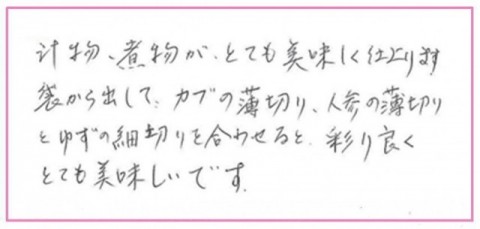 汁物、煮物が、とても美味しく仕上ります
袋から出して、カブの薄切り、人参の薄切り
とゆずの細切りを合わせると、彩り良く
とても美味しいです。